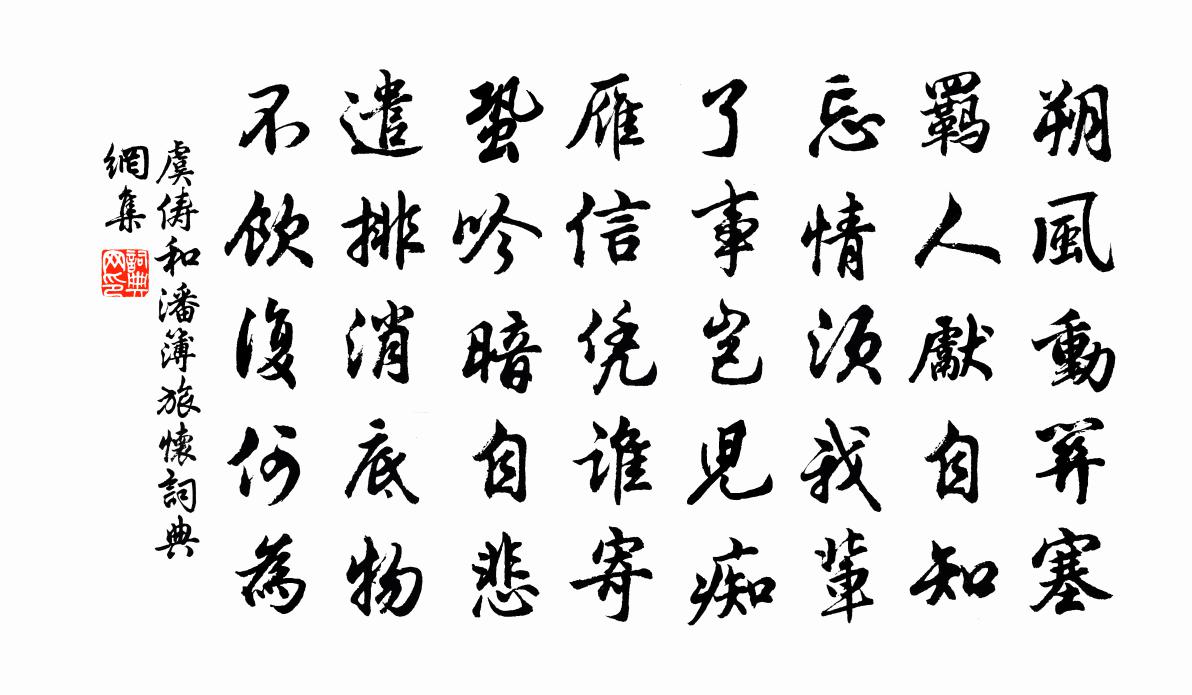 朔風動關塞
羈人獻自知
忘情須我輩
了事豈兒痴
雁信凭誰寄
蛩吟暗自悲
遣排消底物
不飲復何為
虞儔和潘簿旅懷詞典
網集
詞典
网印